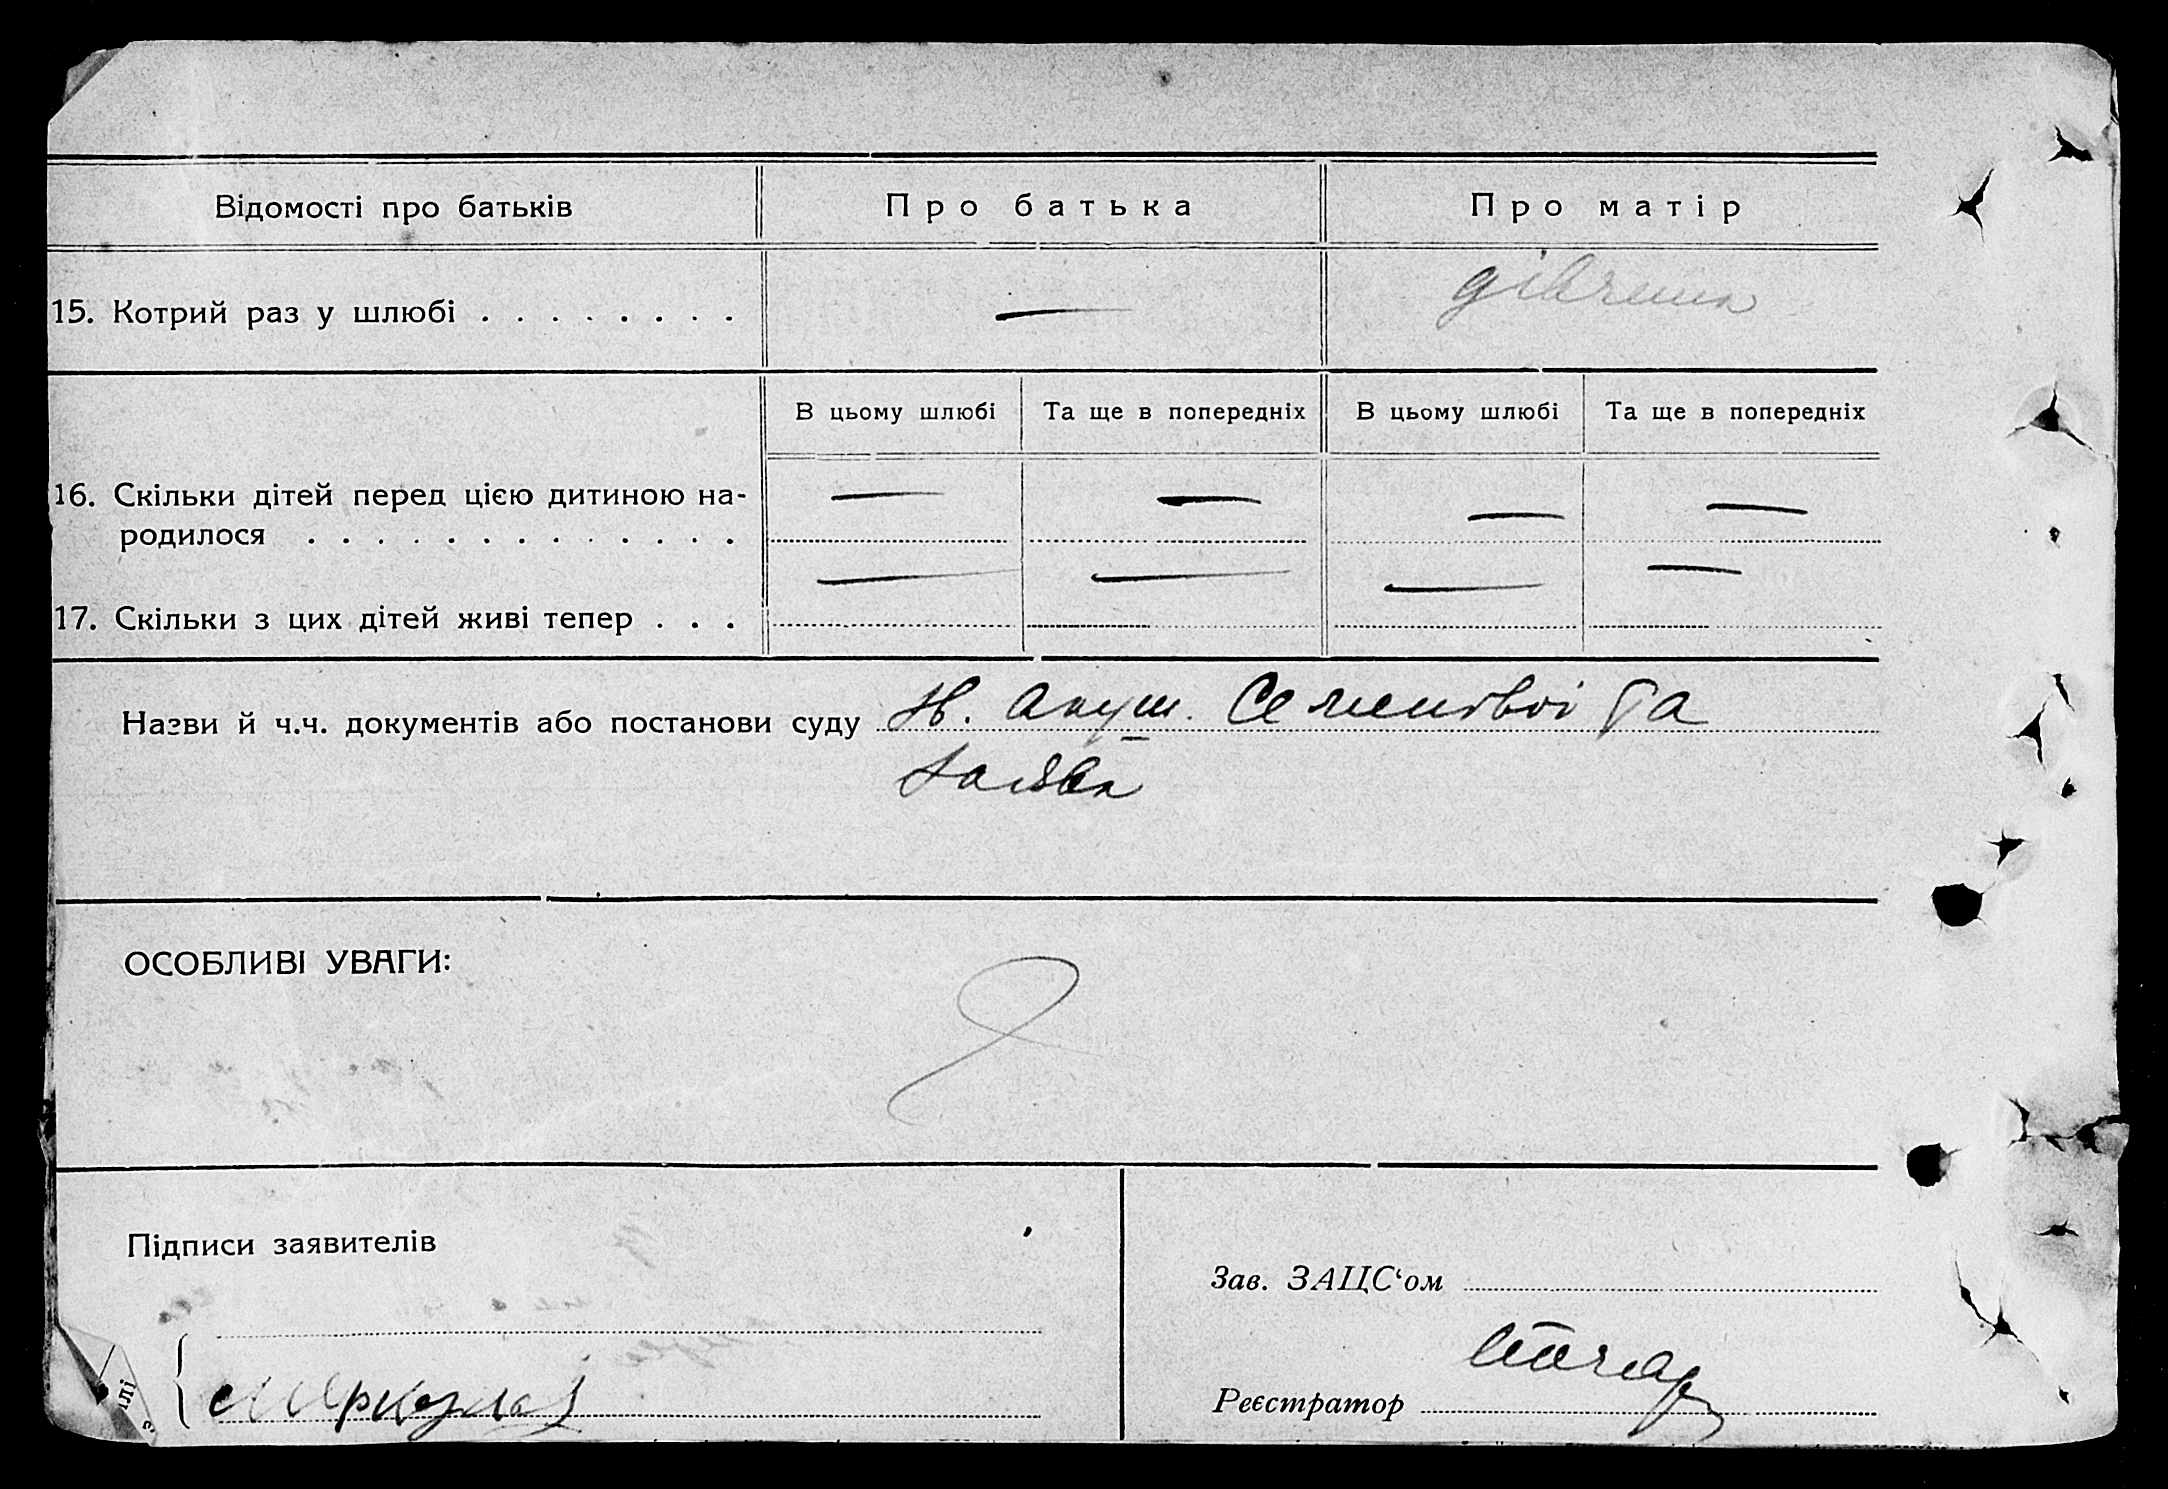 Відомості про батьків
Про батька
Про матір
15. Котрий раз у шлюбі . . . . . . . .
—
дівчина
В цьому шлюбі
Та ще в попередніх
В цьому шлюбі
Та ще в попередніх
16. Скільки дітей перед цією дитиною на-
родилося . . . . . . . . . . . . .
— — — —
17. Скільки з цих дітей живі тепер . . .
— — — —
Назви й ч.ч. документів або постанови суду Акуш. Семенової та
заява
ОСОБЛИВІ УВАГИ:
Підписи заявителів
Зав. ЗАЦС‘ом
Реєстратор